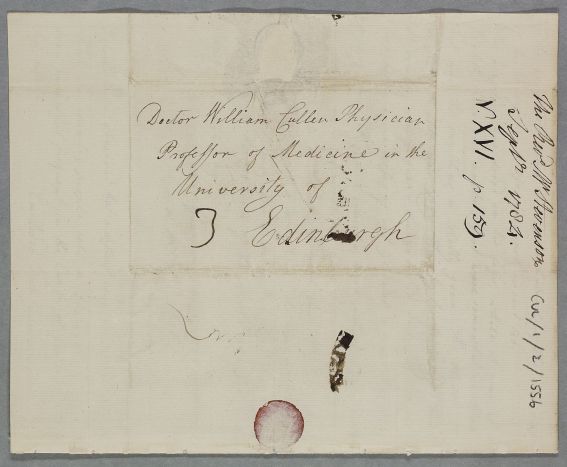 Doctor William Cullen Physician
Professor of Medicine in the
University of
3 Edinburgh
The Revd Mr Stevenson
Septr 1782.
V XVI. p. 159.
CUL/1/2/1556